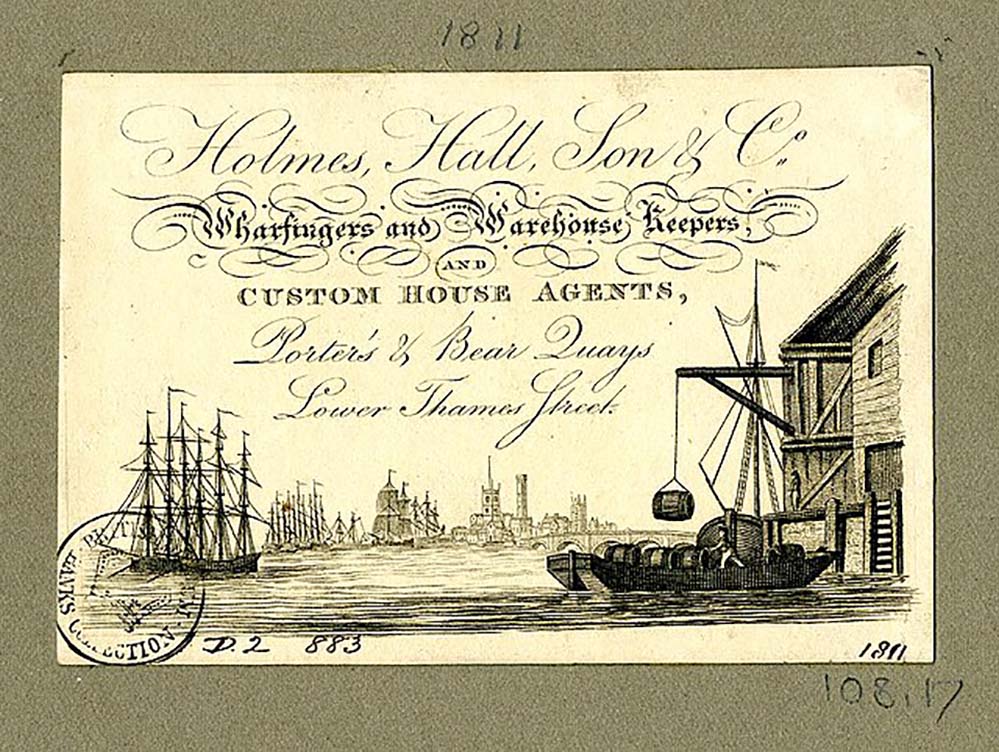 1811
Holmes, Hall, Son & Co.
Wharfingers and Warehouse Keepers,
AND
CUSTOM HOUSE AGENTS,
Porter's & Bear Quays
Lower Thames Street.
BANKS COLLECTION
D.2 883
1811
108.17